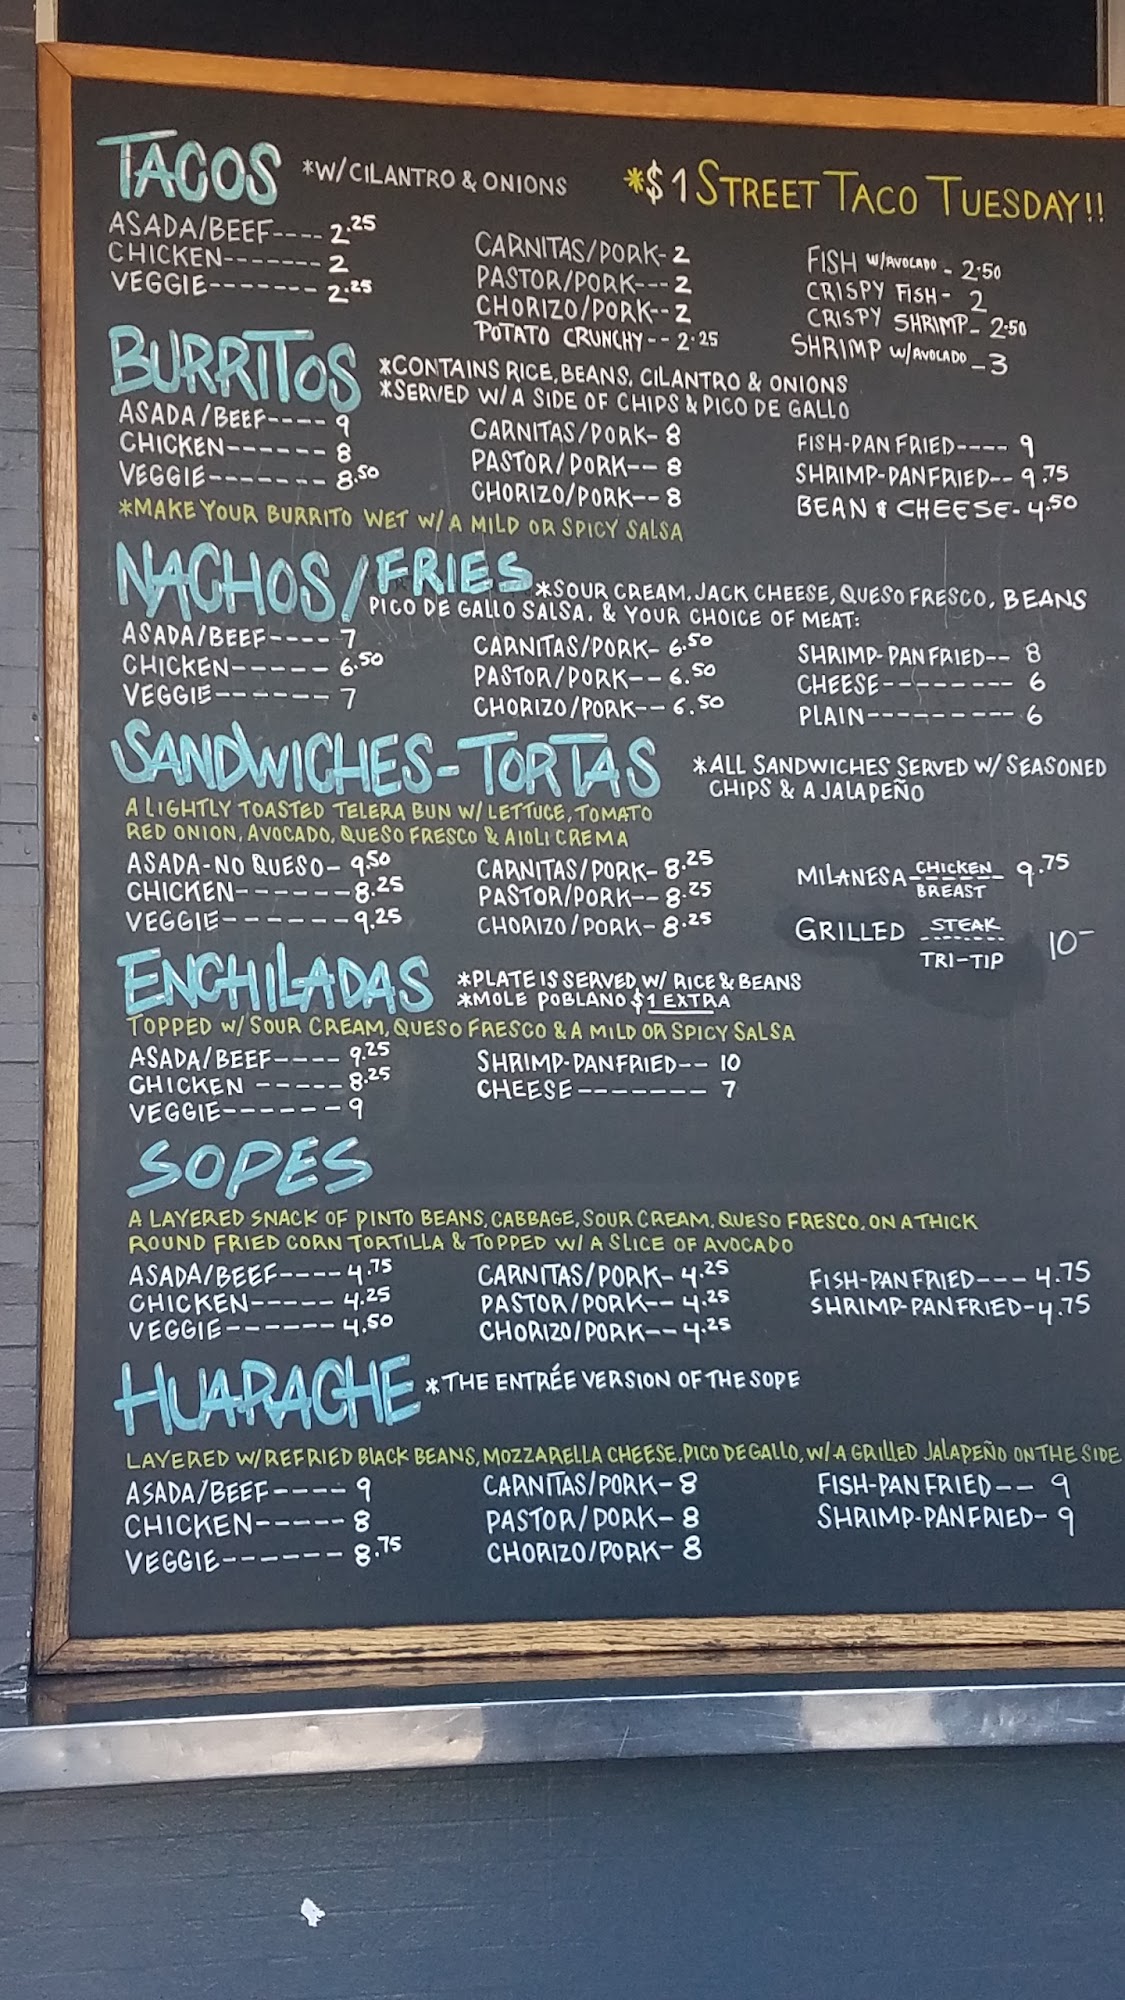 TACOS *W/CILANTRO & ONIONS *$1 STREET TACO TUESDAY!!
ASADA/BEEF---- 2.25
CHICKEN------- 2
VEGGIE------- 2.25
CARNITAS/PORK- 2
PASTOR/PORK--- 2
CHORIZO/PORK-- 2
POTATO CRUNCHY-- 2.25
FISH W/AVOCADO - 2.50
CRISPY FISH- 2
CRISPY SHRIMP- 2.50
SHRIMP W/AVOCADO - 3
BURRITOS *CONTAINS RICE, BEANS, CILANTRO & ONIONS
*SERVED W/A SIDE OF CHIPS & PICO DE GALLO
ASADA/BEEF---- 9
CHICKEN------ 8
VEGGIE------- 8.50
CARNITAS/PORK- 8
PASTOR/PORK-- 8
CHORIZO/PORK-- 8
FISH-PAN FRIED---- 9
SHRIMP-PANFRIED-- 9.75
BEAN & CHEESE- 4.50
*MAKE YOUR BURRITO WET W/A MILD OR SPICY SALSA
NACHOS/FRIES *SOUR CREAM, JACK CHEESE, QUESO FRESCO, BEANS
PICO DE GALLO SALSA, & YOUR CHOICE OF MEAT:
ASADA/BEEF---- 7
CHICKEN----- 6.50
VEGGIE------ 7
CARNITAS/PORK- 6.50
PASTOR/PORK-- 6.50
CHORIZO/PORK-- 6.50
SHRIMP-PAN FRIED-- 8
CHEESE-------- 6
PLAIN--------- 6
SANDWICHES-TORTAS *ALL SANDWICHES SERVED W/ SEASONED
CHIPS & A JALAPEÑO
A LIGHTLY TOASTED TELERA BUN W/ LETTUCE, TOMATO
RED ONION, AVOCADO, QUESO FRESCO & AIOLI CREMA
ASADA-NO QUESO- 9.50
CHICKEN------ 8.25
VEGGIE------ 9.25
CARNITAS/PORK- 8.25
PASTOR/PORK-- 8.25
CHORIZO/PORK- 8.25
MILANESA- CHICKEN BREAST 9.75
GRILLED STEAK TRI-TIP 10-
ENCHILADAS *PLATE IS SERVED W/ RICE & BEANS
*MOLE POBLANO $1 EXTRA
TOPPED W/ SOUR CREAM, QUESO FRESCO & A MILD OR SPICY SALSA
ASADA/BEEF---- 9.25
CHICKEN ----- 8.25
VEGGIE------ 9
SHRIMP-PANFRIED-- 10
CHEESE------- 7
SOPES
A LAYERED SNACK OF PINTO BEANS, CABBAGE, SOUR CREAM, QUESO FRESCO, ON A THICK
ROUND FRIED CORN TORTILLA & TOPPED W/ A SLICE OF AVOCADO
ASADA/BEEF---- 4.75
CHICKEN----- 4.25
VEGGIE------ 4.50
CARNITAS/PORK- 4.25
PASTOR/PORK-- 4.25
CHORIZO/PORK-- 4.25
FISH-PAN FRIED--- 4.75
SHRIMP-PANFRIED- 4.75
HUARACHE *THE ENTRÉE VERSION OF THE SOPE
LAYERED W/REFRIED BLACK BEANS, MOZZARELLA CHEESE, PICO DE GALLO, W/ A GRILLED JALAPEÑO ON THE SIDE
ASADA/BEEF---- 9
CHICKEN----- 8
VEGGIE------ 8.75
CARNITAS/PORK- 8
PASTOR/PORK- 8
CHORIZO/PORK- 8
FISH-PAN FRIED-- 9
SHRIMP-PANFRIED- 9